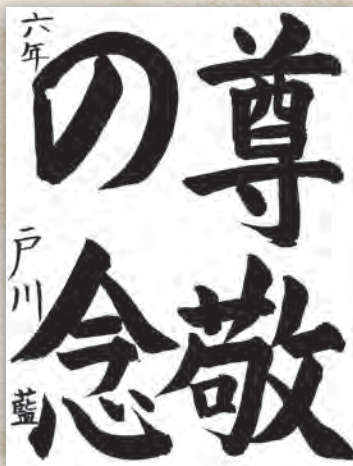 尊敬
の念
六年 戸川 藍